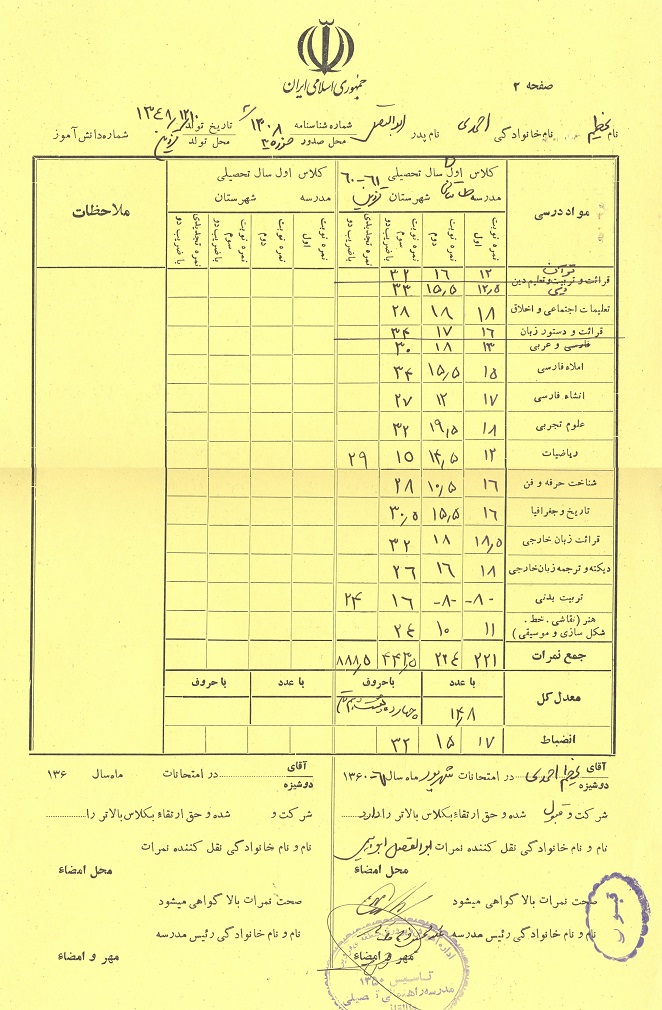 جمهوری اسلامی ایران
صفحه ۲
نام عظیم نام خانوادگی احمدی نام پدر ابوالفضل شماره شناسنامه ۱۳۰۸ تاریخ تولد ۱۳۴۸/۱۲/۱۰ شماره دانش آموز
محل صدور محل تولد قزوین
مواد درسی
کلاس اول سال تحصیلی ۶۱-۶۰
مدرسه طالقانی شهرستان قزوین
کلاس اول سال تحصیلی
مدرسه شهرستان
ملاحظات
نمره نوبت اول
نمره نوبت دوم
نمره نوبت سوم با ضریب دو
نمره تجدیدی با ضریب دو
نمره نوبت اول
نمره نوبت دوم
نمره نوبت سوم با ضریب دو
نمره تجدیدی با ضریب دو
قرآن ۱۲ ۱۶ ۳۲
قرائت و تربیت و تعلیم دین دینی ۱۲,۵ ۱۵,۵ ۳۳
تعلیمات اجتماعی و اخلاق ۱۸ ۱۸ ۲۸
قرائت و دستور زبان ۱۶ ۱۷ ۳۴
فارسی و عربی ۱۳ ۱۸ ۳۰
املاء فارسی ۱۵ ۱۵,۵ ۳۴
انشاء فارسی ۱۷ ۱۲ ۲۷
علوم تجربی ۱۸ ۱۹,۵ ۳۲
ریاضیات ۱۲ ۱۴,۵ ۱۵ ۲۹
شناخت حرفه و فن ۱۶ ۱۰,۵ ۲۸
تاریخ و جغرافیا ۱۶ ۱۵,۵ ۳۰,۵
قرائت زبان خارجی ۱۸,۵ ۱۸ ۳۲
دیکته و ترجمه زبان خارجی ۱۸ ۱۶ ۲۶
تربیت بدنی -۸- -۸- ۱۶ ۲۴
هنر (نقاشی . خط . شکل سازی و موسیقی) ۱۱ ۱۰ ۲۴
جمع نمرات ۲۲۱ ۲۲۴ ۴۴۳,۵ ۸۸۸,۵
معدل کل
با عدد با حروف با عدد با حروف
۱۴,۸ چهارده
انضباط ۱۷ ۱۵ ۳۲
آقای
دوشیزه عظیم احمدی در امتحانات شهریور ماه سال ۶۱-۱۳۶۰
شرکت و قبول شده و حق ارتقاء بکلاس بالاتر را دارد
نام و نام خانوادگی نقل کننده نمرات ابوالفضل
محل امضاء
صحت نمرات بالا گواهی میشود
نام و نام خانوادگی رئیس مدرسه
مهر و امضاء
آقای
دوشیزه در امتحانات ماه سال ۱۳۶
شرکت و شده و حق ارتقاء بکلاس بالاتر را
نام و نام خانوادگی نقل کننده نمرات
محل امضاء
صحت نمرات بالا گواهی میشود
نام و نام خانوادگی رئیس مدرسه
مهر و امضاء
قبول
تاسیس ۱۳۵۰
مدرسه راهنمائی تحصیلی